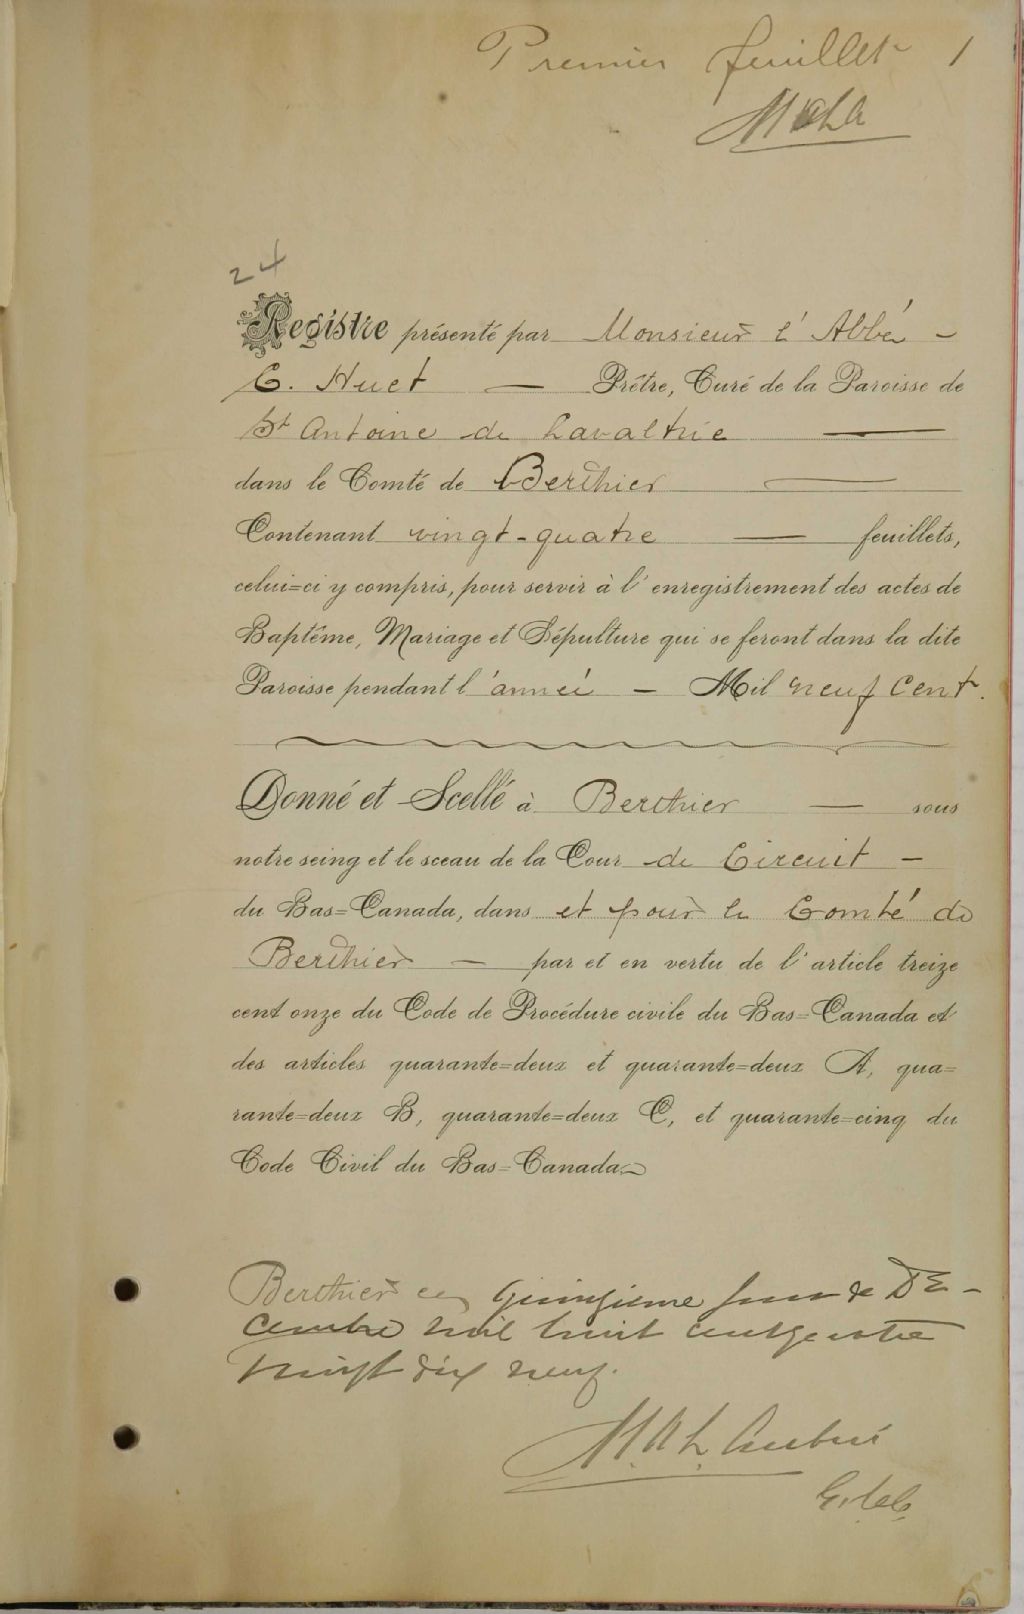 Premier feuillet 1
MALA
24
Registre présenté par Monsieur l'Abbé –
C. Huet — Prêtre, Curé de la Paroisse de
St Antoine de Lavaltrie —
dans le Comté de Berthier —
Contenant vingt-quatre — feuillets,
celui=ci y compris, pour servir à l'enregistrement des actes de
Baptême, Mariage et Sépulture qui se feront dans la dite
Paroisse pendant l'année – Mil neuf cent.
Donné et Scellé à Berthier — sous
notre seing et le sceau de la Cour de Circuit –
du Bas=Canada, dans et pour le Comté de
Berthier — par et en vertu de l'article treize
cent onze du Code de Procédure civile du Bas=Canada et
des articles quarante=deux et quarante=deux A, qua=
rante=deux B, quarante=deux C, et quarante=cinq du
Code Civil du Bas=Canada.
Berthier ce quinzieme jour de DE-
cembre mil huit cent quatre
vingt dix neuf.
M.A.L. Aubin